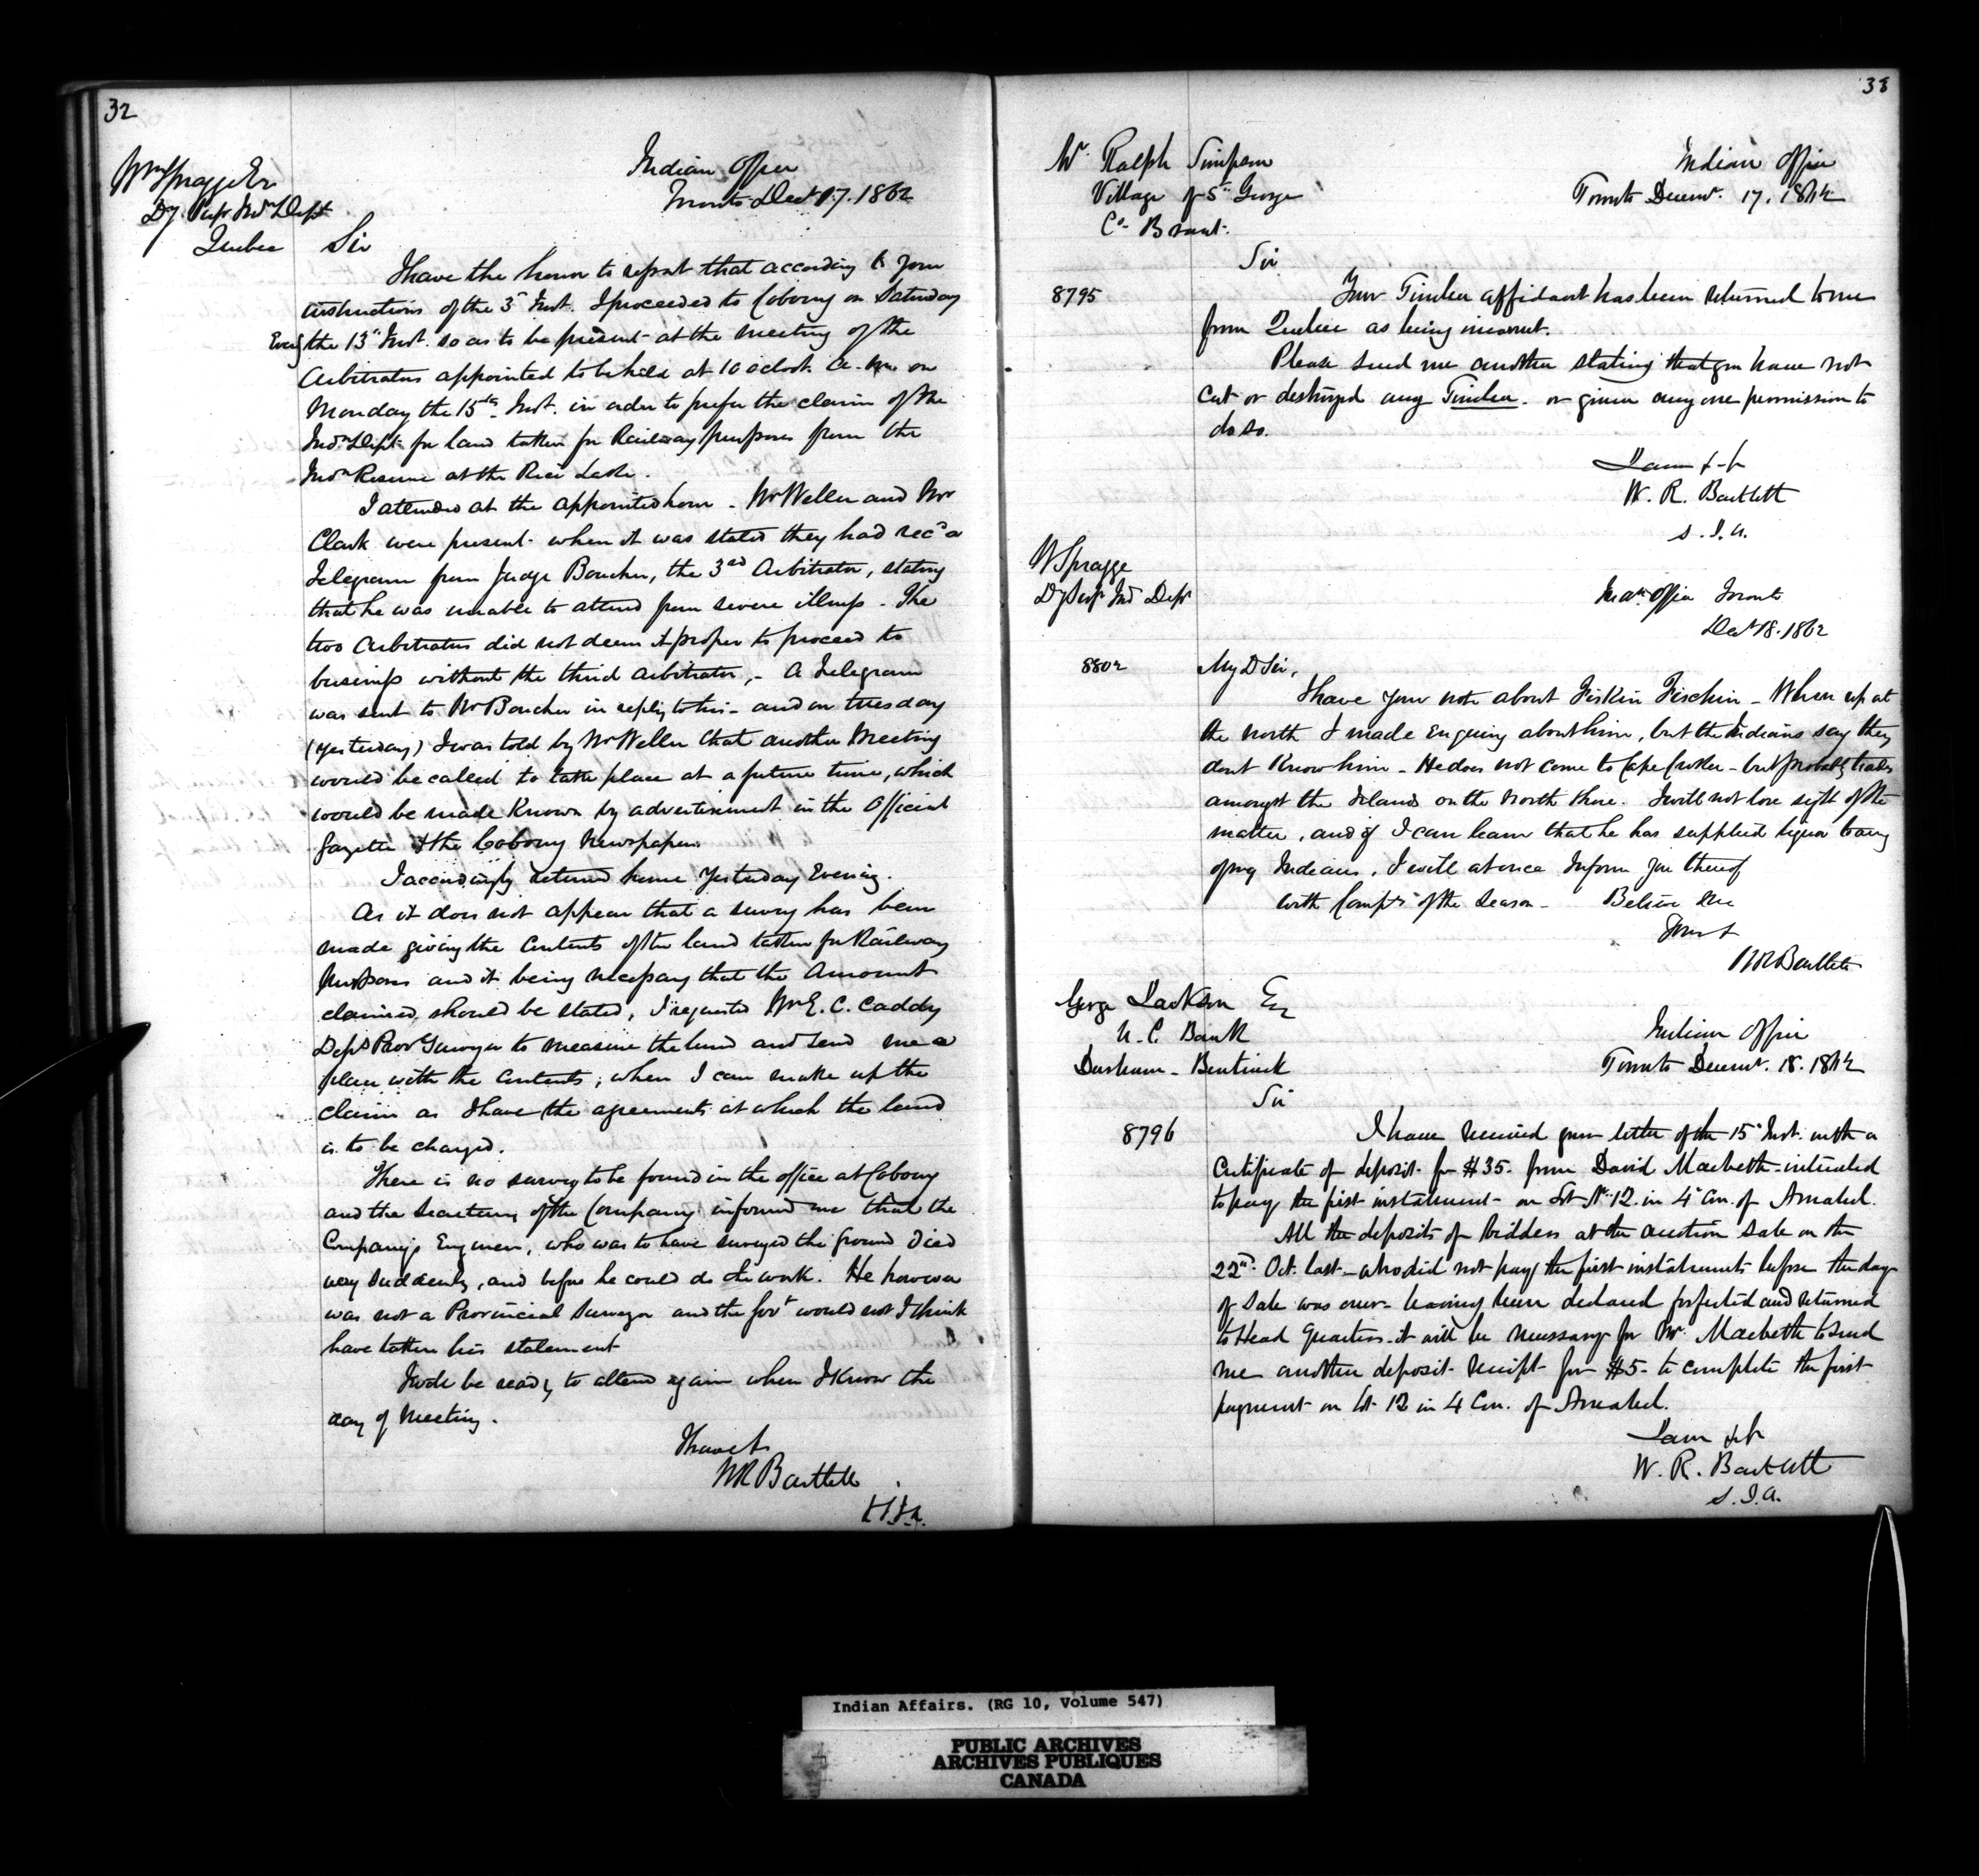 32
Wm Spragge Esr
Dy. Supt Indn Dept
Quebec
Indian Office
Toronto Decr 17. 1862
Sir
I have the honor to report that according to your
instructions of the 3d Inst. I proceeded to Cobourg on Saturday
Eveng the 13th Inst. so as to be present at the meeting of the
Arbitrators appointed to be held at 10 oclock a.m. on
Monday the 15th Inst. in order to prefer the claim of the
Indn Dept for land taken for Railway purposes from the
Indn Reserve at the Rice Lake.
I attended at the appointed hour. Mr Weller and Mr
Clark were present when it was stated they had recd a
Telegram from Judge Boucher, the 3rd Arbitrator, stating
that he was unable to attend from severe illness. The
two Arbitrators did not deem it proper to proceed to
business without the third Arbitrator,- A Telegram
was sent to Mr Boucher in reply to his - and on Tuesday
(yesterday) I was told by Mr Weller that another Meeting
would be called to take place at a future time, which
would be made known by advertisement in the Official
Gazette & the Cobourg Newspapers.
I accordingly returned home yesterday Evening.
As it does not appear that a survey has been
made giving the contents of the land taken for Railway
Purposes and it being necessary that the Amount
claimed should be stated, I requested Mr E. C. Caddy
Depy Prov Surveyor to measure the land and send me a
plan with the contents, when I can make up the
claim as I have the agreements at which the land
is to be charged.
There is no survey to be found in the office at Cobourg
and the Secretary of the Company informed me that the
Company's Engineer, who was to have surveyed the ground died
very suddenly, and before he could do the work. He however
was not a Provincial Surveyor and the Govt would not I think
have taken his statement
I wd be ready to attend again when I know the
day of Meeting.
I have &c
WR Bartlett
38
Mr. Ralph Simpson
Village of St. George
Co. Brant.
Indian Office
Toronto Decemr. 17. 1862
Sir
8795
Your Timber affidavit has been returned to me
from Quebec as being incorrect.
Please send me another stating that you have not
cut or destroyed any Timber - or given any one permission to
do so.
I am &c
W. R. Bartlett
S.I.A.
W Spragge
Dy Supt Ind Dept
Indn Office Toronto
Decr 18. 1862
8802
My D Sir,
I have your note about Fiskin Fischin - When up at
the north I made Enquiry about him, but the Indians say they
dont Know him - He does not come to Cape Croker - but probably trades
amongst the Islands on the North Shore. I will not lose sight of the
matter, and if I can learn that he has supplied liquor to any
of my Indians, I will at once Inform you thereof
With Compts of the Season - Believe Me
Yours &
WR Bartlett
George Jackson Esq
U. C. Bank
Durham - Bentinck
Indian Office
Toronto Decemr. 18. 1862
Sir
8796
I have received your letter of the 15th Inst. with a
Certificate of deposit for $35. from David Macbeth - intended
to pay the first instalment - on Lot No 12. in 4th Con. of Amabel.
All the deposits of bidders at the auction sale on the
22nd. Oct. last - who did not pay the first instalments before the day
of Sale was over - having been declared forfeited and returned
to Head Quarters - it will be necessary for Mr. Macbeth to send
me another deposit receipt for $5 - to complete the first
payment on Lot 12 in 4 Con. of Amabel.
I am &c
W. R. Bartlett
S.I.A.
Indian Affairs. (RG 10, Volume 547)
PUBLIC ARCHIVES
ARCHIVES PUBLIQUES
CANADA